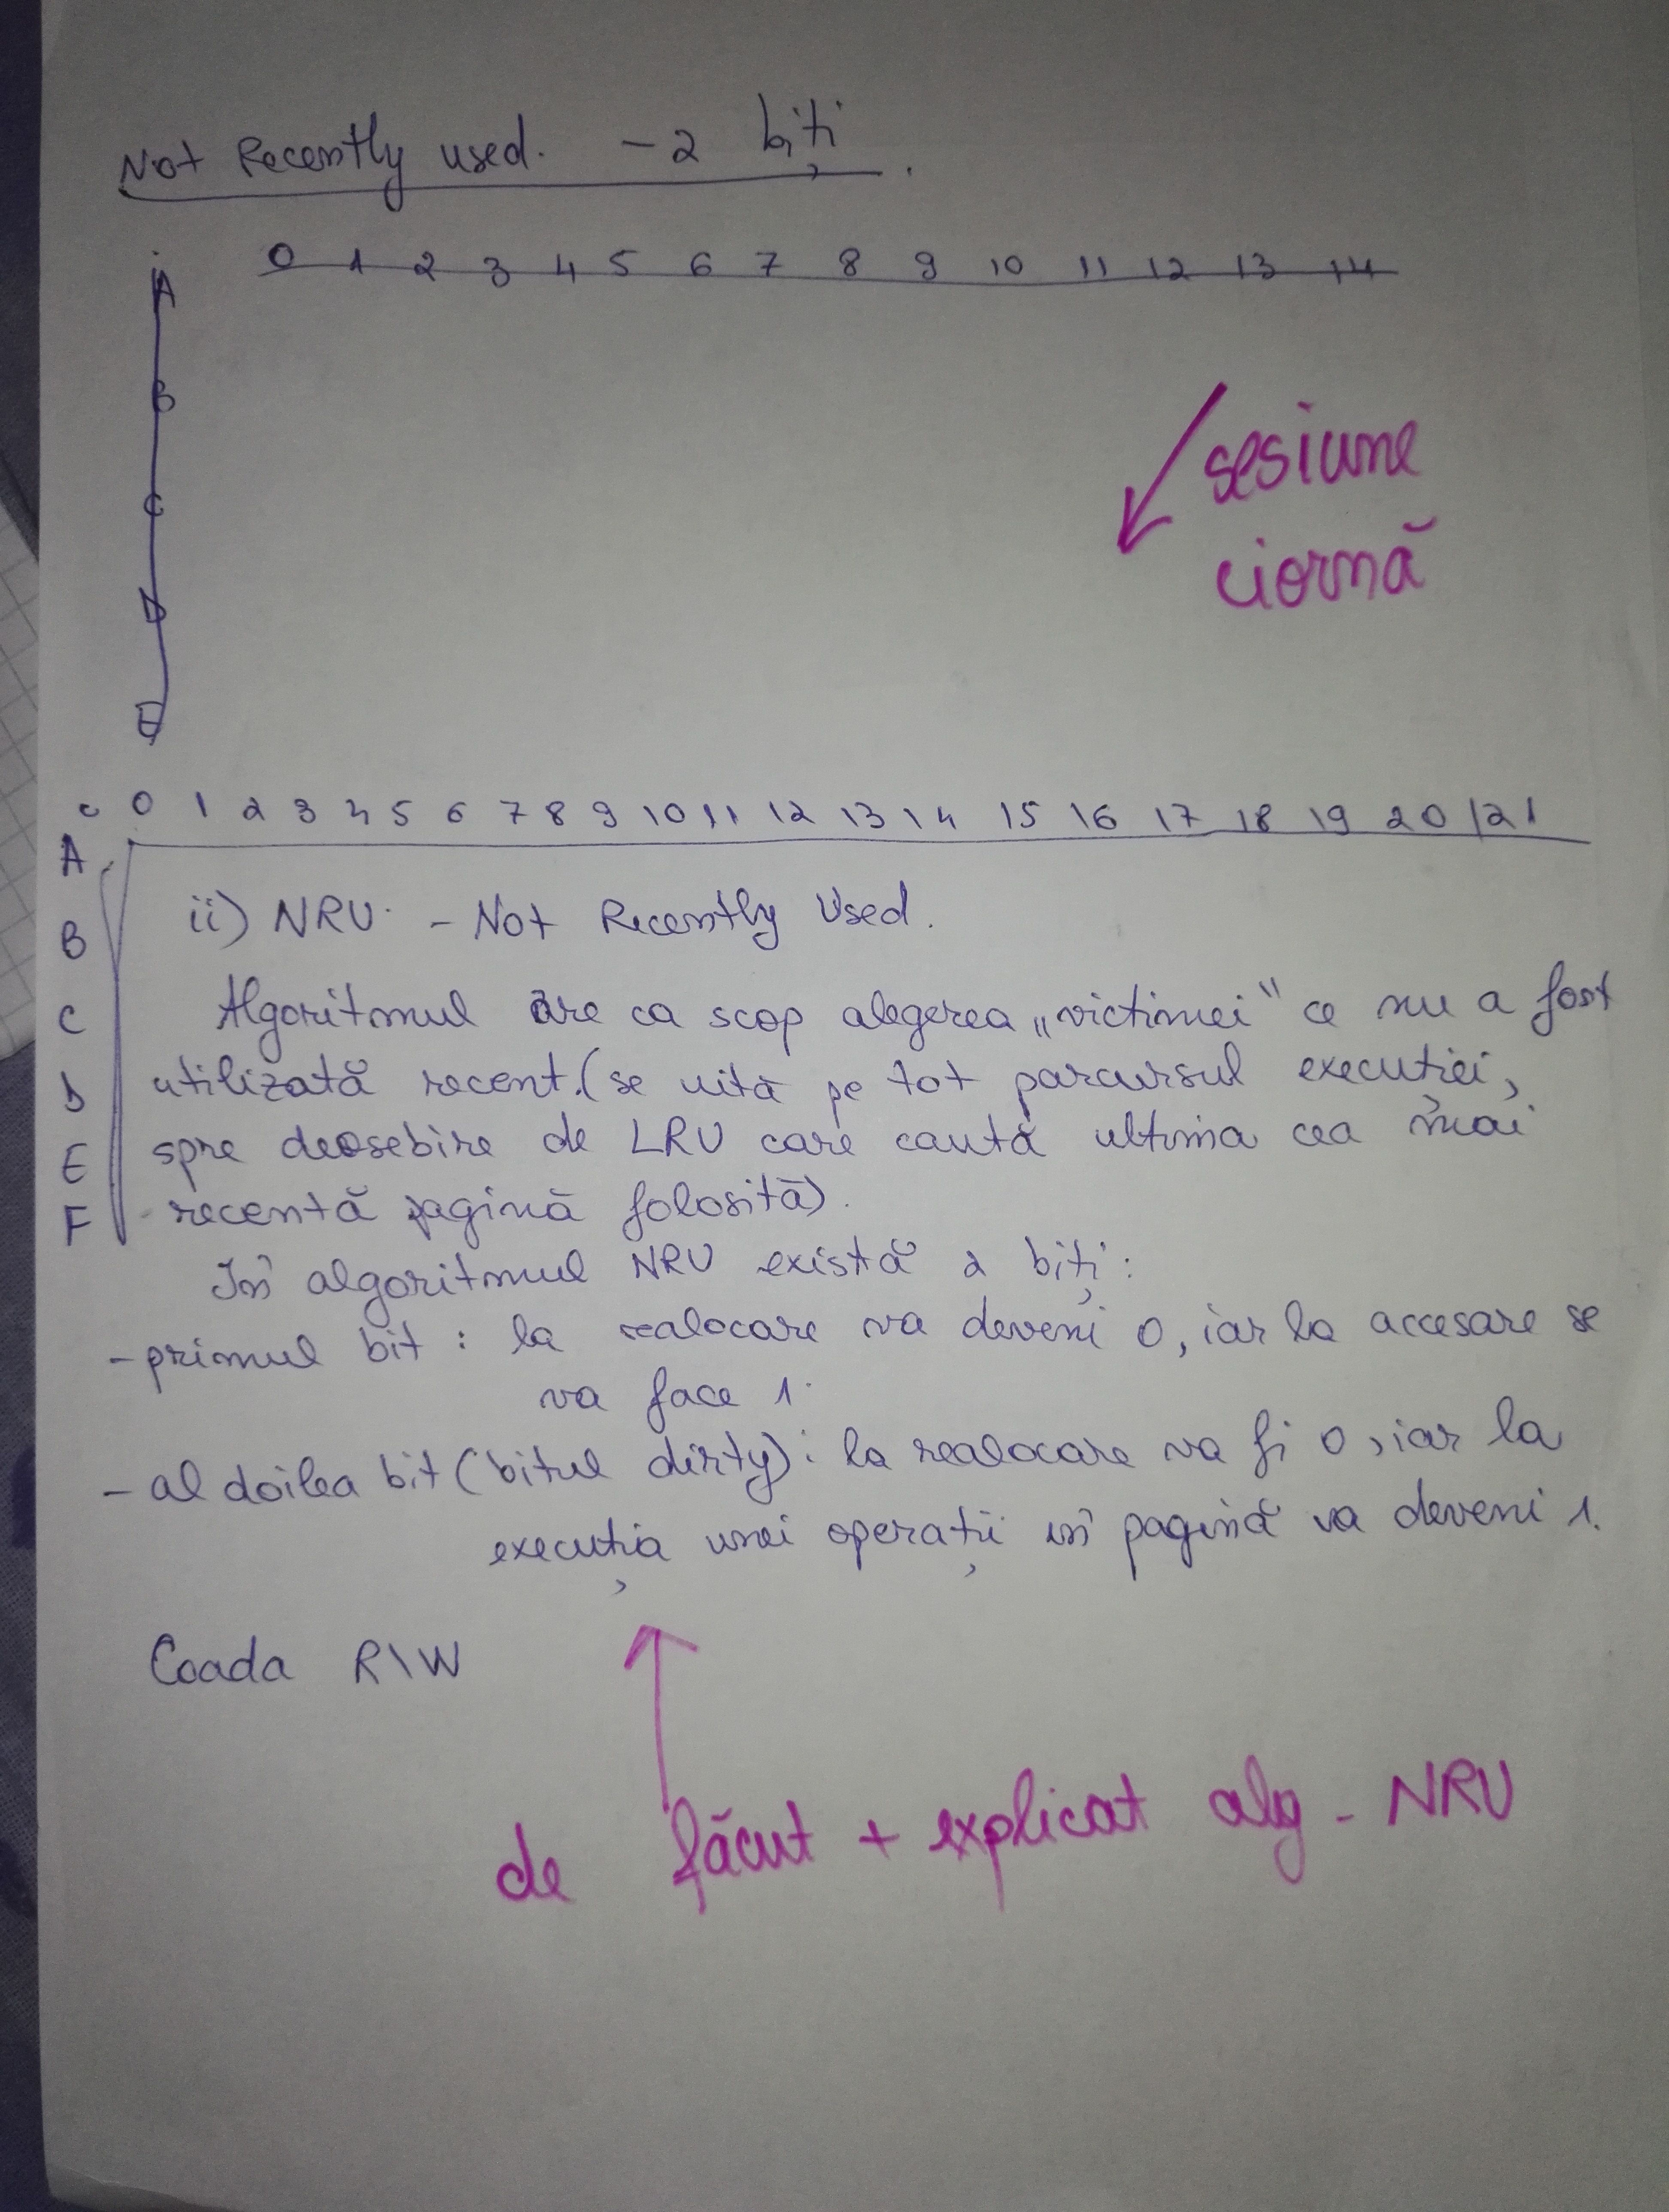 Not Recently used. - 2 biți.
0 1 2 3 4 5 6 7 8 9 10 11 12 13 14
A
B
C
D
E
sesiune
ciornă
0 1 2 3 4 5 6 7 8 9 10 11 12 13 14 15 16 17 18 19 20 21
A
B
C
D
E
F
ii) NRU - Not Recently Used.
Algoritmul are ca scop alegerea „victimei" ce nu a fost
utilizată recent. (se uită pe tot parcursul execuției,
spre deosebire de LRU care caută ultima cea mai
recentă pagină folosită).
În algoritmul NRU există 2 biți:
- primul bit: la realocare va deveni 0, iar la accesare se
va face 1.
- al doilea bit (bitul dirty): la realocare va fi 0, iar la
execuția unei operații în pagină va deveni 1.
Coada R\W
de făcut + explicat alg - NRU